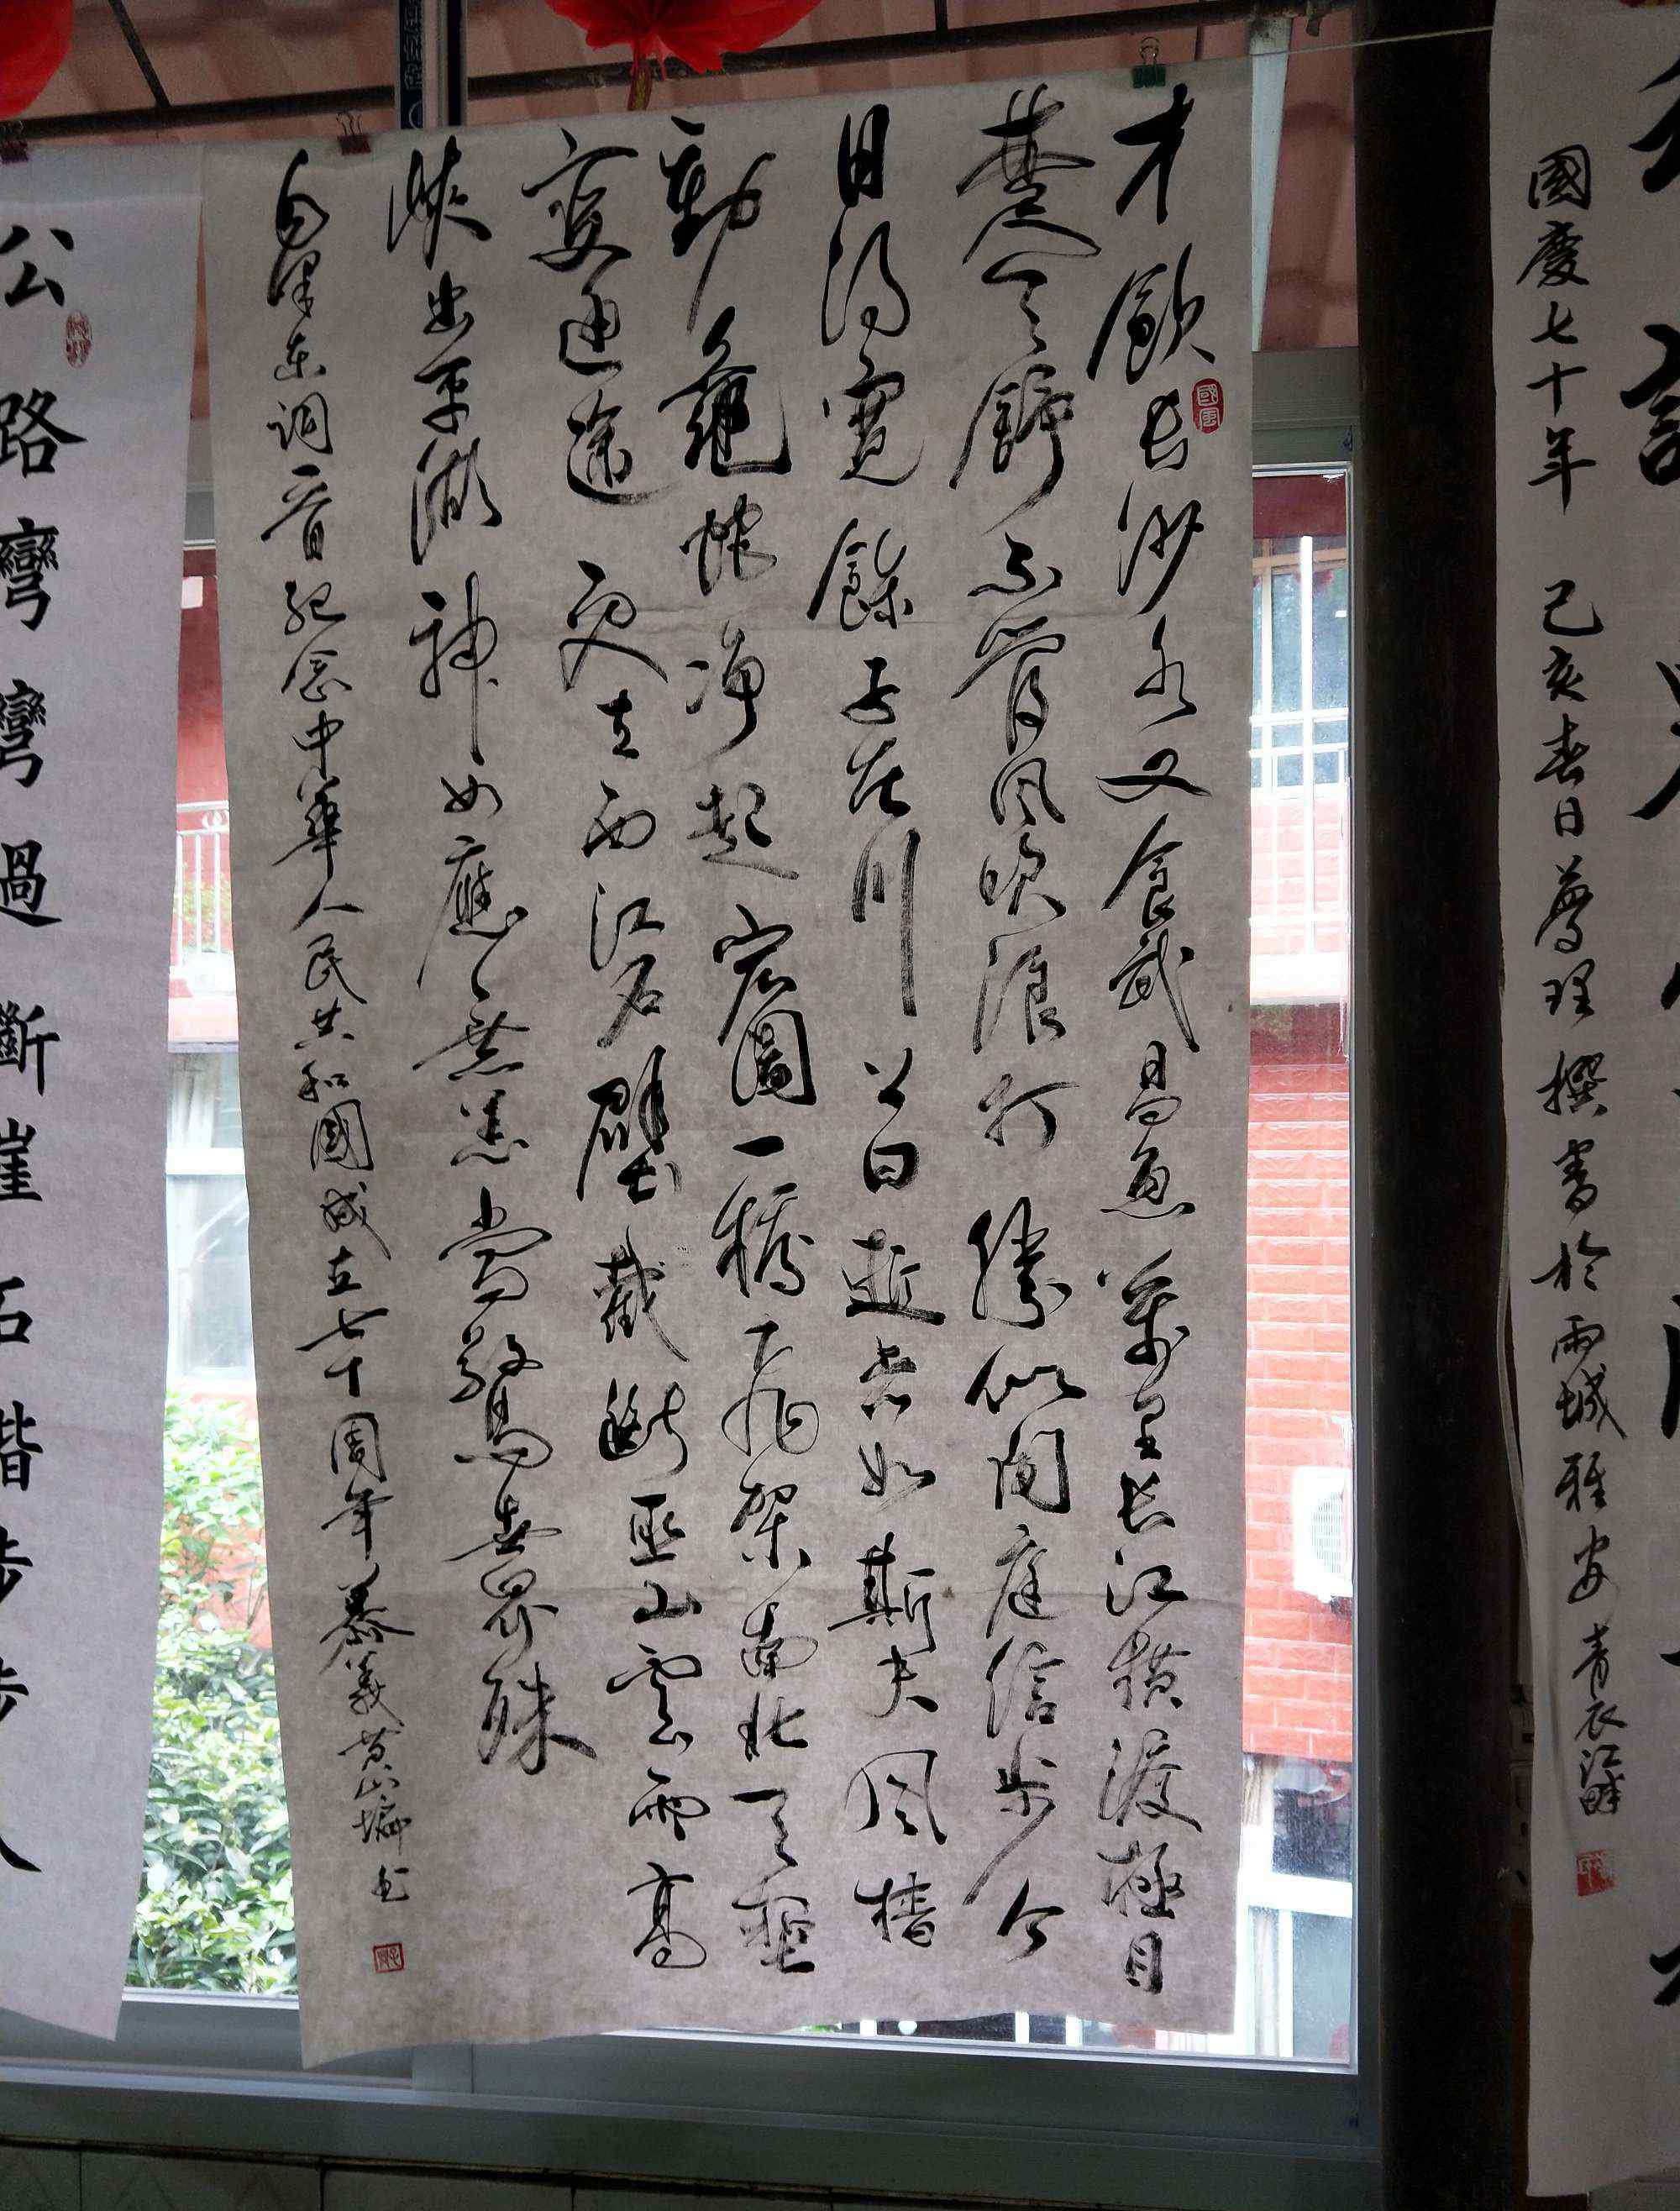 國慶七十年 己亥春日 撰書於雨城雅安青衣江畔
才飲長沙水又食武昌魚萬里長江橫渡極目
楚天舒不管風吹浪打勝似閒庭信步今
日得寬餘子在川上曰逝者如斯夫風檣
動龜蛇净起宏圖一橋飛架南北天塹
變通途更立西江石壁截斷巫山雲雨高
峽出平湖神女應無恙當驚世界殊
毛澤東詞一首紀念中華人民共和國成立七十周年 慕義黃山 书
公路彎彎過斷崖石階步步人